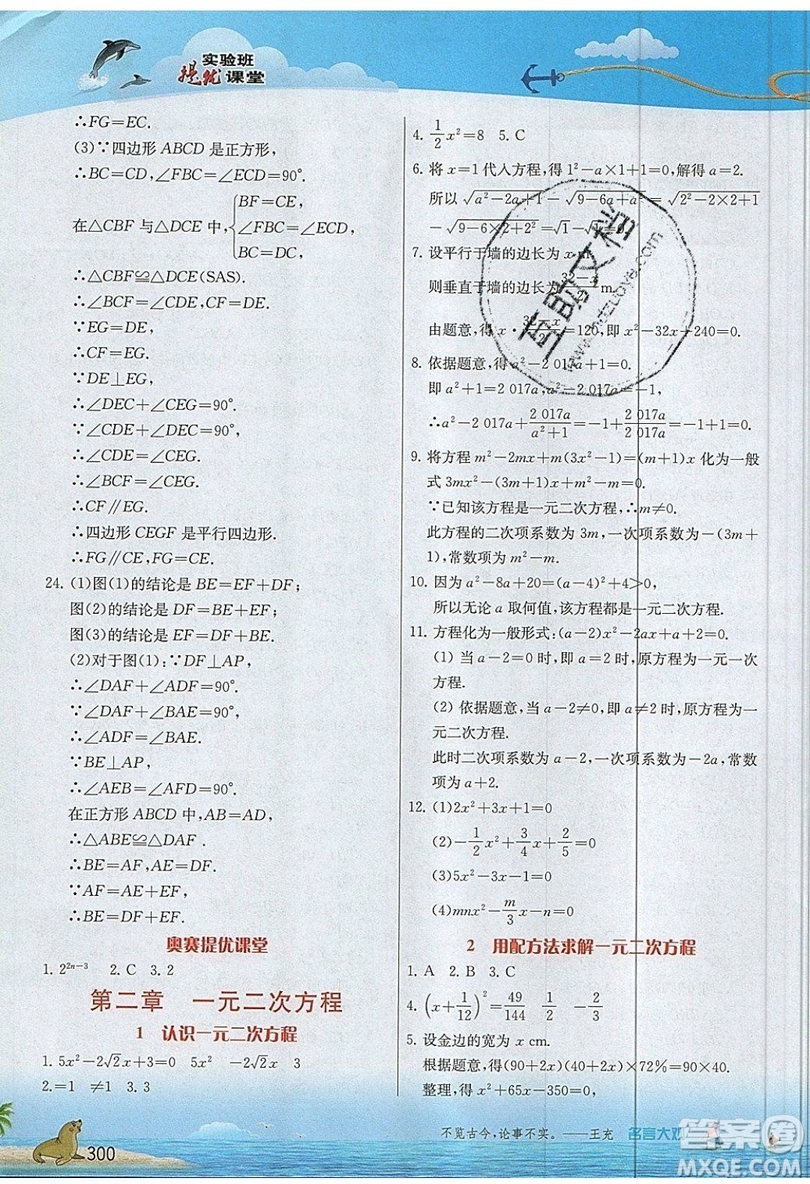 实验班
提优课堂
∴FG=EC.
(3)∵四边形 ABCD 是正方形,
∴BC=CD,∠FBC=∠ECD=90°.
在△CBF 与△DCE 中,{BF=CE,
∠FBC=∠ECD,
BC=DC,
∴△CBF≌△DCE(SAS).
∴∠BCF=∠CDE,CF=DE.
∵EG=DE,
∴CF=EG.
∵DE⊥EG,
∴∠DEC+∠CEG=90°.
∵∠CDE+∠DEC=90°,
∴∠CDE=∠CEG.
∴∠BCF=∠CEG.
∴CF∥EG.
∴四边形 CEGF 是平行四边形.
∴FG∥CE,FG=CE.
24. (1)图(1)的结论是 BE=EF+DF;
图(2)的结论是 DF=BE+EF;
图(3)的结论是 EF=DF+BE.
(2)对于图(1):∵DF⊥AP,
∴∠DAF+∠ADF=90°.
∵∠DAF+∠BAE=90°,
∴∠ADF=∠BAE.
∵BE⊥AP,
∴∠AEB=∠AFD=90°.
在正方形 ABCD 中,AB=AD,
∴△ABE≌△DAF.
∴BE=AF,AE=DF.
∵AF=AE+EF,
∴BE=DF+EF.
奥赛提优课堂
1. 2²ⁿ⁻³ 2. C 3. 2
第二章 一元二次方程
1 认识一元二次方程
1. 5x²-2√2x+3=0 5x² -2√2x 3
2. =1 ≠1 3. 3
4. 1/2x²=8 5. C
6. 将 x=1 代入方程,得 1²-a×1+1=0,解得 a=2.
所以 √(a²-2a+1)-√(9-6a+a²)=√(2²-2×2+1)
-√(9-6×2+2²)=√1-√1=0.
7. 设平行于墙的边长为 x m,
则垂直于墙的边长为 (32-x)/2 m.
由题意,得 x·(32-x)/2=120,即 x²-32x+240=0.
8. 依据题意,得 a²-2 017a+1=0.
即 a²+1=2 017a,a²-2 017a=-1,
∴a²-2 017a+2 017a/(a²+1)=-1+2 017a/2 017a=-1+1=0.
9. 将方程 m²-2mx+m(3x²-1)=(m+1)x 化为一般
式 3mx²-(3m+1)x+m²-m=0.
∵已知该方程是一元二次方程,∴m≠0.
此方程的二次项系数为 3m,一次项系数为-(3m+
1),常数项为 m²-m.
10. 因为 a²-8a+20=(a-4)²+4>0,
所以无论 a 取何值,该方程都是一元二次方程.
11. 方程化为一般形式:(a-2)x²-2ax+a+2=0.
(1) 当 a-2=0 时,即 a=2 时,原方程为一元一次
方程.
(2) 依据题意,当 a-2≠0,即 a≠2 时,原方程为一
元二次方程.
此时二次项系数为 a-2,一次项系数为-2a,常数
项为 a+2.
12. (1)2x²+3x+1=0
(2)-1/2x²+3/4x+5/2=0
(3)5x²-3x-2=0
(4)mnx²-m/3x-n=0
2 用配方法求解一元二次方程
1. A 2. B 3. C
4. (x+1/12)²=49/144 1/2 -2/3
5. 设金边的宽为 x cm.
根据题意,得(90+2x)(40+2x)×72%=90×40.
整理,得 x²+65x-350=0.
300
不览古今,论事不实。——王充 名言大观
答案圈
MXQE.COM